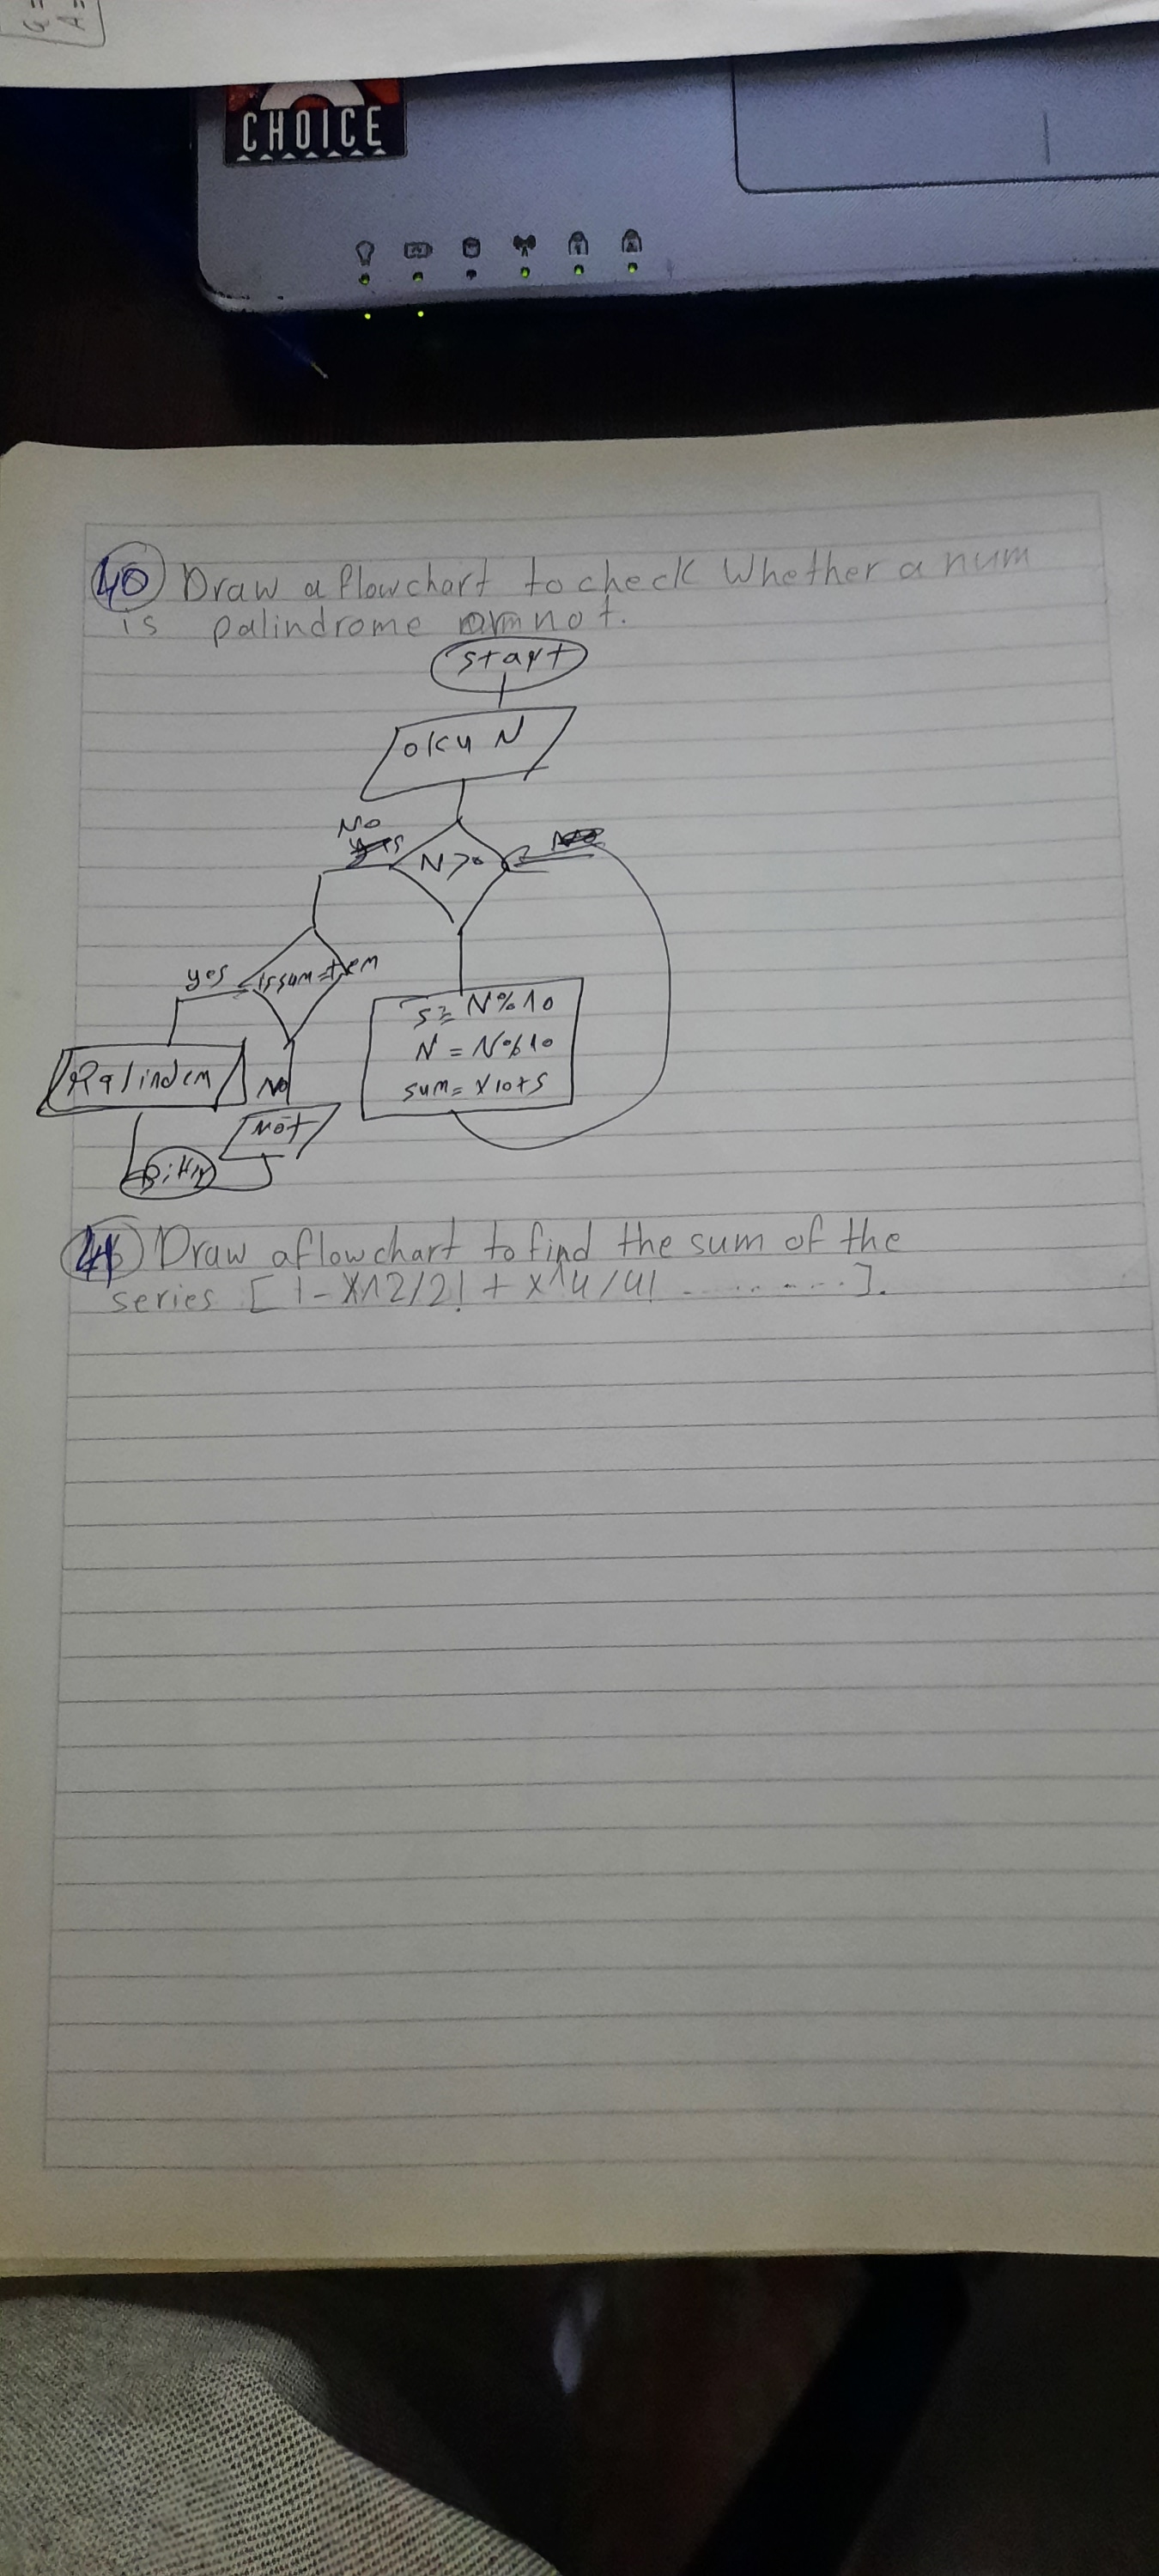 CHOICE
40 Draw a flowchart to check Whether a num
is palindrome not.
start
oku N
No
N>0
yes is sum=tem
s= N%10
N = N%10
sum= x10+s
Palindem
No
Not
Bitir
41 Draw a flowchart to find the sum of the
series [1-x^2/2! + x^4/4! ..........].